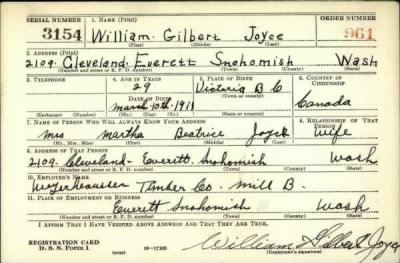 SERIAL NUMBER 1. NAME (Print) ORDER NUMBER
3154 William Gilbert Joyce 961
(First) (Middle) (Last)
2. ADDRESS (Print)
2109 Cleveland Everett Snohomish Wash
(Number and street or R. F. D. number) (Town) (County) (State)
3. TELEPHONE 4. AGE IN YEARS 5. PLACE OF BIRTH 6. COUNTRY OF CITIZENSHIP
29 Victoria B.C
DATE OF BIRTH (Town or county)
March 10th 1911 Canada
(Exchange) (Number) (Mo.) (Day) (Yr.) (State or country)
7. NAME OF PERSON WHO WILL ALWAYS KNOW YOUR ADDRESS 8. RELATIONSHIP OF THAT PERSON
Mrs Martha Beatrice Joyce Wife
(Mr., Mrs., Miss) (First) (Middle) (Last)
9. ADDRESS OF THAT PERSON
2109 Cleveland - Everett. Snohomish Wash
(Number and street or R. F. D. number) (Town) (County) (State)
10. EMPLOYER'S NAME
Weyerhaeuser Timber Co. Mill B.
11. PLACE OF EMPLOYMENT OR BUSINESS
Everett Snohomish Wash
(Number and street or R. F. D. number) (Town) (County) (State)
I AFFIRM THAT I HAVE VERIFIED ABOVE ANSWERS AND THAT THEY ARE TRUE.
REGISTRATION CARD
D. S. S. Form 1 (over) 16—17105 William Gilbert Joyce
(Registrant's signature)